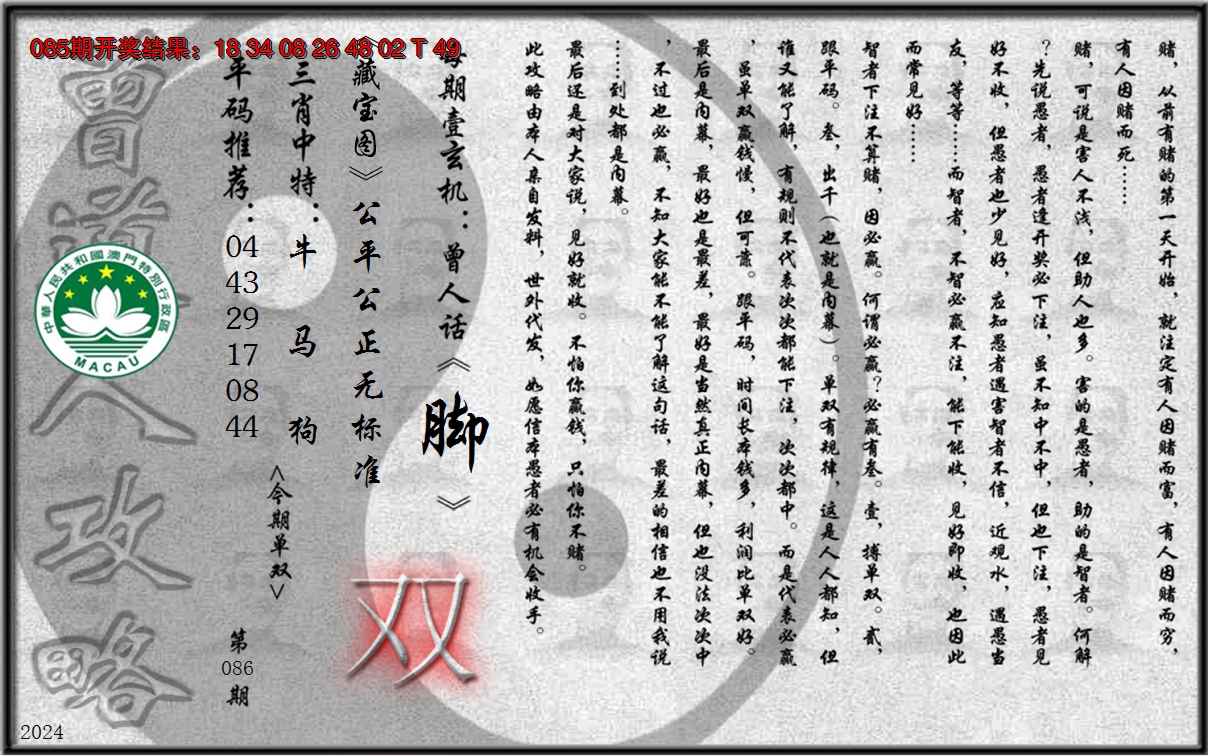 085期开奖结果：18 34 08 26 48 02 T 49
赌，从前有赌的第一天开始，就注定有人因赌而富，有人因赌而穷，
有人因赌而死……
赌，可说是害人不浅，但助人也多。害的是愚者，助的是智者。何解
？先说愚者，愚者逢开奖必下注，虽不知中不中，但也下注，愚者见
好不收，但愚者也少见好，应知愚者遇害智者不信，近观水，遇愚当
友，等等……而智者，不智必赢不注，能下能收，见好即收，也因此
而常见好……
智者下注不算赌，因必赢。何谓必赢？必赢有叁。壹，搏单双。贰，
跟平码。叁，出千（也就是内幕）。单双有规律，这是人人都知，但
谁又能了解，有规则不代表次次都能下注，次次都中。而是代表必赢
，虽单双赢钱慢，但可靠。跟平码，时间长本钱多，利润比单双好。
最后是内幕，最好也是最差，最好是当然真正内幕，但也没法次次中
，不过也必赢，不知大家能不能了解这句话，最差的相信也不用我说
……到处都是内幕。
最后还是对大家说，见好就收。不怕你赢钱，只怕你不赌。
此攻略由本人亲自发料，世外代发，如愿信本愚者必有机会收手。
每期壹玄机：曾人话《脚》
《藏宝图》公平公正无标准
双
三肖中特：牛 马 狗
<今期单双>
平码推荐：04 43 29 17 08 44
第086期
曾道人攻略
中華人民共和國澳門特別行政區
MACAU
2024